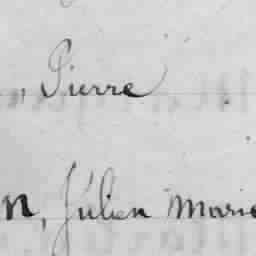 , Pierre
n, Julien Marie